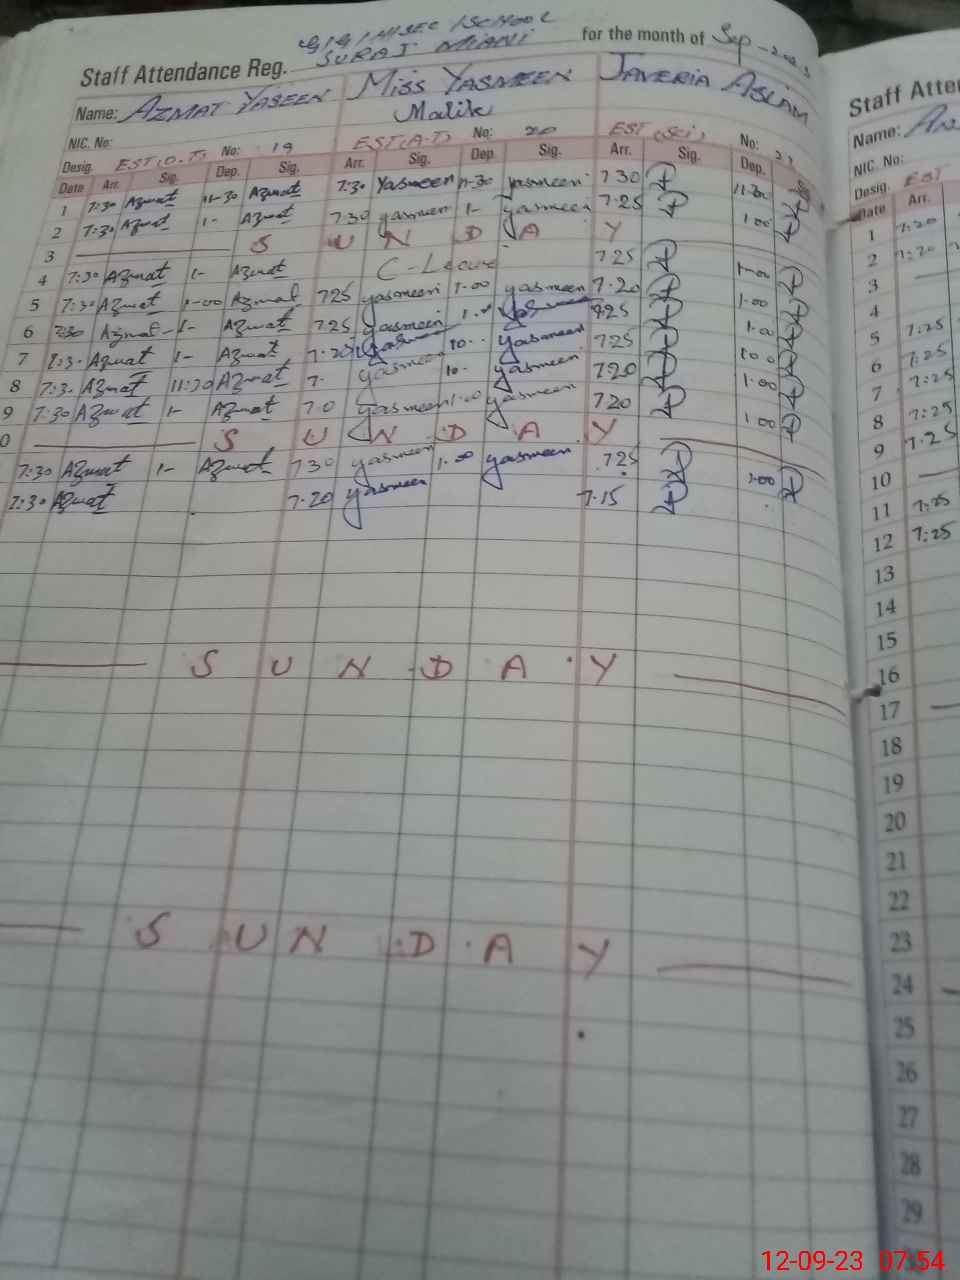 G/G/HISEC/SCHOOL
SURAJ MIANI
Staff Attendance Reg. for the month of Sep-2023
Name: AZMAT YASEEN MISS YASMEEN JAVERIA ASLAM
Malik
NIC. No:
Desig. EST(O.T) No: 19 EST(A-T) No: 20 EST(Sci) No:
Date Arr. Sig. Dep. Sig. Arr. Sig. Dep. Sig. Arr. Sig. Dep.
1 7:30 Azmat 11-30 Azmat 7:30 Yasmeen 11-30 yasmeen 7 30 11.30
2 7:30 Azmat 1- Azmat 7 30 yasmeen 1- yasmeen 7.25 1.00
3 S U N D A Y
4 7:30 Azmat 1- Azmat C-Leave 7 25 1.00
5 7:30 Azmat 1-00 Azmat 7 25 yasmeen 1.00 yasmeen 7.20 1.00
6 7:30 Azmat 1- Azmat 7 25 yasmeen yasmeen 7 25 1.00
7 7:3. Azmat 1- Azmat 7:20 yasmeen yasmeen 7 25 1 00
8 7:3. Azmat 11:30 Azmat yasmeen yasmeen 7 20 1.00
9 7:30 Azmat 1- Azmat yasmeen 1.00 yasmeen 7 20 1 00
0 S U N D A Y
7:30 Azmat 1- Azmat 7 30 yasmeen 1.00 yasmeen 7 25 1.00
7:30 Azmat 7.20 yasmeen 7.15
S U N D A Y
S U N D A Y
Staff Atte
Name:
NIC. No:
Desig. EST
Date Arr.
1 7:20
2 7:20
3
4
5 7:25
6 7:25
7 7:25
8 7:25
9 7:25
10
11 7:25
12 7:25
13
14
15
16
17
18
19
20
21
22
23
24
25
26
27
28
29
12-09-23 07:54